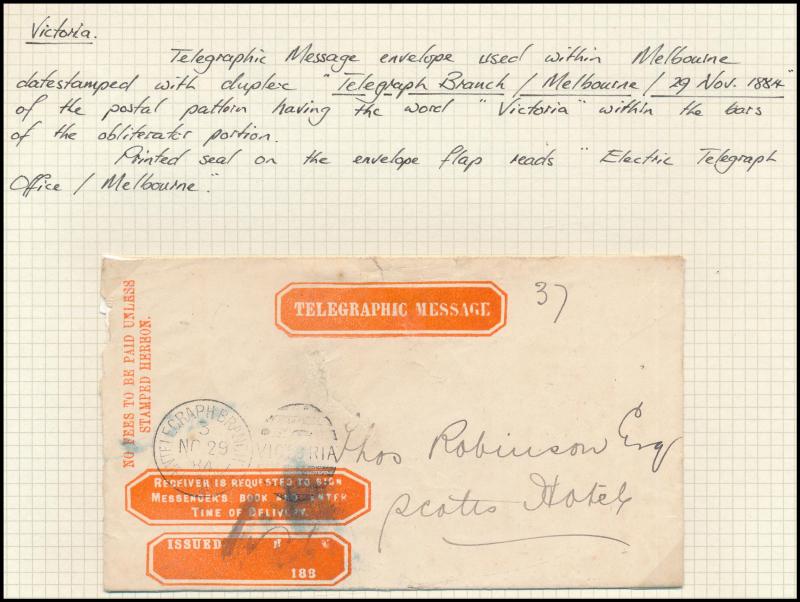 Victoria.
Telegraphic Message envelope used within Melbourne
datestamped with duplex "Telegraph Branch / Melbourne / 29 Nov. 1884"
of the postal pattern having the word "Victoria" within the bars
of the obliterator portion.
Printed seal on the envelope flap reads "Electric Telegraph
Office / Melbourne".
NO FEES TO BE PAID UNLESS
STAMPED HEREON.
TELEGRAPHIC MESSAGE
37
TELEGRAPH BRANCH
3
NO 29
84
VICTORIA
Thos Robinson Esq
Scotts Hotel
RECEIVER IS REQUESTED TO SIGN
MESSENGER'S BOOK AND ENTER
TIME OF DELIVERY.
ISSUED
188